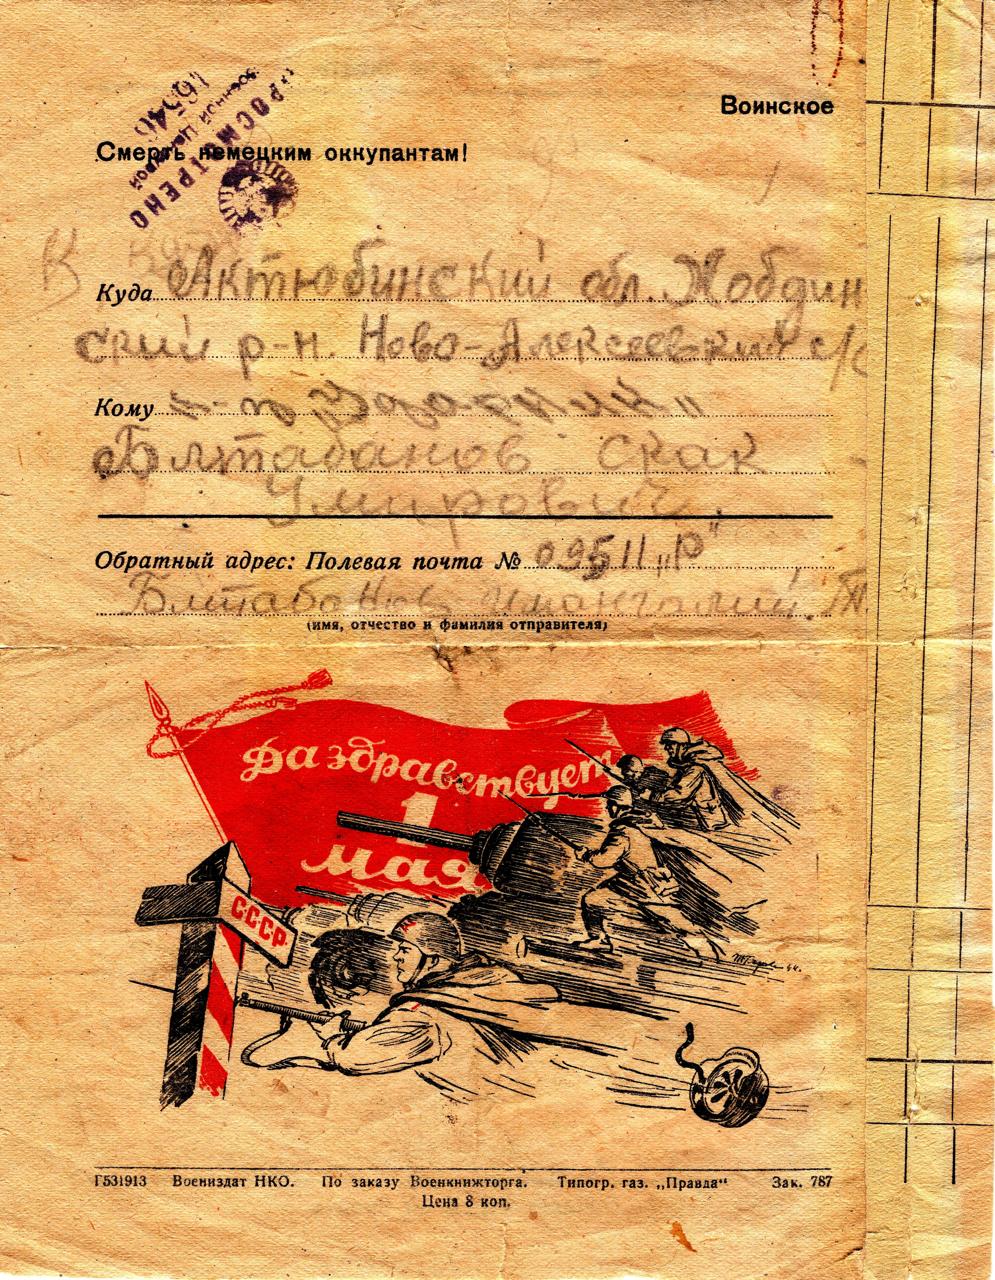 Воинское
ПРОСМОТРЕНО
Военной Цензурой
16546
Смерть немецким оккупантам!
Куда Актюбинский обл. Жобдин
ский р-н. Ново-Алексеевский с/с
Кому
Блтабанов Срак
Умирович
Обратный адрес: Полевая почта № 09511 „Р"
Блтабанов
(имя, отчество и фамилия отправителя)
Да здравствует
1
мая
СССР
44.
Г531913 Воениздат НКО. По заказу Военкнижторга. Типогр. газ. „Правда“ Зак. 787
Цена 8 коп.